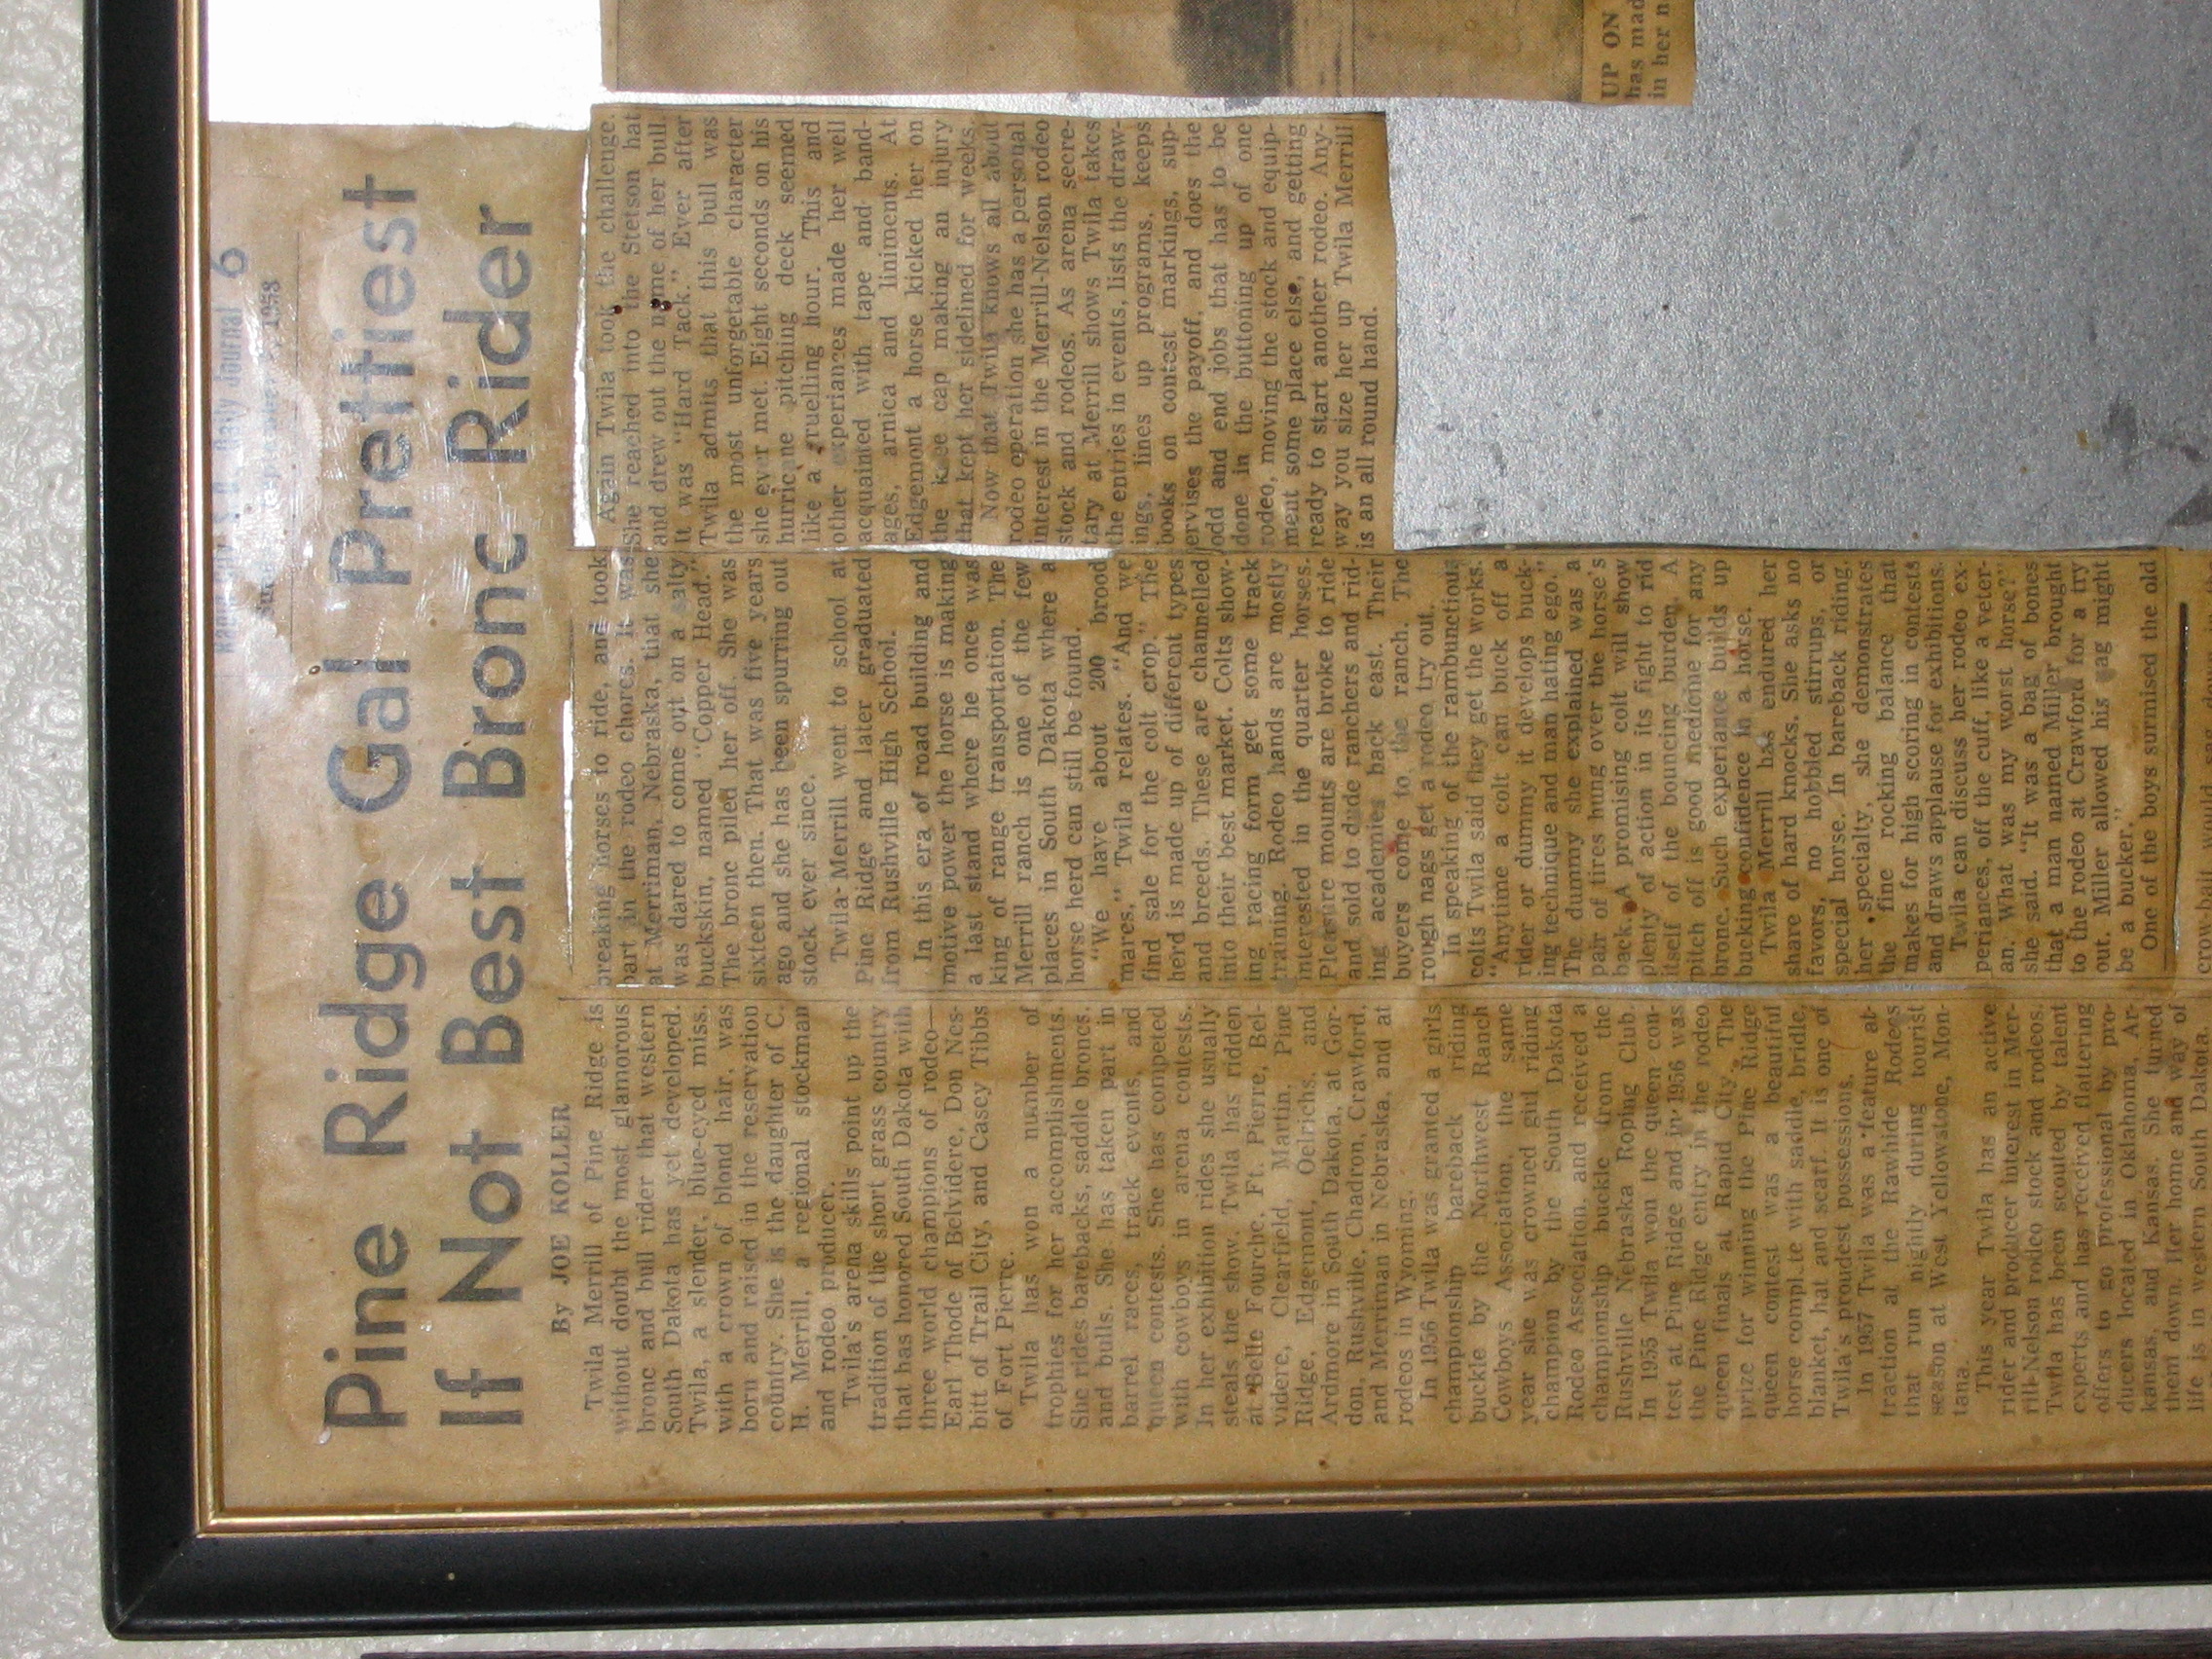 Daily Journal 6
1958
Pine Ridge Gal Prettiest
If Not Best Bronc Rider
By JOE KOLLER
Twila Merrill of Pine Ridge is
without doubt the most glamorous
bronc and bull rider that western
South Dakota has yet developed.
Twila, a slender, blue-eyed miss.
with a crown of blond hair, was
born and raised in the reservation
country. She is the daughter of C.
H. Merrill, a regional stockman
and rodeo producer.
Twila's arena skills point up the
tradition of the short grass country
that has honored South Dakota with
three world champions of rodeo—
Earl Thode of Belvidere, Don Nes-
bitt of Trail City, and Casey Tibbs
of Fort Pierre.
Twila has won a number of
trophies for her accomplishments.
She rides barebacks, saddle broncs,
and bulls. She has taken part in
barrel races, track events, and
queen contests. She has competed
with cowboys in arena contests.
In her exhibition rides she usually
steals the show. Twila has ridden
at Belle Fourche, Ft. Pierre, Bel-
videre, Clearfield, Martin, Pine
Ridge, Edgemont, Oelrichs, and
Ardmore in South Dakota, at Gor-
don, Rushville, Chadron, Crawford,
and Merriman in Nebraska, and at
rodeos in Wyoming.
In 1956 Twila was granted a girls
championship bareback riding
buckle by the Northwest Ranch
Cowboys Association, the same
year she was crowned girl riding
champion by the South Dakota
Rodeo Association, and received a
championship buckle from the
Rushville Nebraska Roping Club.
In 1955 Twila won the queen con-
test at Pine Ridge and in 1956 was
the Pine Ridge entry in the rodeo
queen finals at Rapid City. The
prize for winning the Pine Ridge
queen contest was a beautiful
horse complete with saddle, bridle,
blanket, hat and scarf. It is one of
Twila's proudest possessions.
In 1957 Twila was a feature at-
traction at the Rawhide Rodeos
that run nightly during tourist
season at West Yellowstone, Mon-
tana.
This year Twila has an active
rider and producer interest in Mer-
rill-Nelson rodeo stock and rodeos.
Twila has been scouted by talent
experts and has received flattering
offers to go professional by pro-
ducers located in Oklahoma, Ar-
kansas, and Kansas. She turned
them down. Her home and way of
life is in western South Dakota
breaking horses to ride, and took
part in the rodeo chores. It was
at Merriman, Nebraska, that she
was dared to come out on a salty
buckskin, named "Copper Head."
The bronc piled her off. She was
sixteen then. That was five years
ago and she has been spurring out
stock ever since.
Twila Merrill went to school at
Pine Ridge and later graduated
from Rushville High School.
In this era of road building and
motive power the horse is making
a last stand where he once was
king of range transportation. The
Merrill ranch is one of the few
places in South Dakota where a
horse herd can still be found.
"We have about 200 brood
mares," Twila relates. "And we
find sale for the colt crop." The
herd is made up of different types
and breeds. These are channelled
into their best market. Colts show-
ing racing form get some track
training. Rodeo hands are mostly
interested in the quarter horses.
Pleasure mounts are broke to ride
and sold to dude ranchers and rid-
ing academies back east. Their
buyers come to the ranch. The
rough nags get a rodeo try out.
In speaking of the rambunctious
colts Twila said they get the works.
"Anytime a colt can buck off a
rider or dummy it develops buck-
ing technique and man hating ego."
The dummy she explained was a
pair of tires hung over the horse's
back. A promising colt will show
plenty of action in its fight to rid
itself of the bouncing burden. A
pitch off is good medicine for any
bronc. Such experiance builds up
bucking confidence in a horse.
Twila Merrill has endured her
share of hard knocks. She asks no
favors, no hobbled stirrups, or
special horse. In bareback riding,
her specialty, she demonstrates
the fine rocking balance that
makes for high scoring in contests
and draws applause for exhibitions.
Twila can discuss her rodeo ex-
periances, off the cuff, like a veter-
an. What was my worst horse?"
she said. "It was a bag of bones
that a man named Miller brought
to the rodeo at Crawford for a try
out. Miller allowed his nag might
be a bucker."
One of the boys surmised the old
crowbait
Again Twila took the challenge.
She reached into the Stetson hat
and drew out the name of her bull.
It was "Hard Tack." Ever after
Twila admits that this bull was
the most unforgetable character
she ever met. Eight seconds on his
hurricane pitching deck seemed
like a gruelling hour. This and
other experiances made her well
acquainted with tape and band-
ages, arnica and liniments. At
Edgemont a horse kicked her on
the knee cap making an injury
that kept her sidelined for weeks.
Now that Twila knows all about
rodeo operation she has a personal
interest in the Merrill-Nelson rodeo
stock and rodeos. As arena secre-
tary at Merrill shows Twila takes
the entries in events, lists the draw-
ings, lines up programs, keeps
books on contest markings, sup-
ervises the payoff, and does the
odd and end jobs that has to be
done in the buttoning up of one
rodeo, moving the stock and equip-
ment some place else, and getting
ready to start another rodeo. Any-
way you size her up Twila Merrill
is an all round hand.
UP ON
has mad
in her n